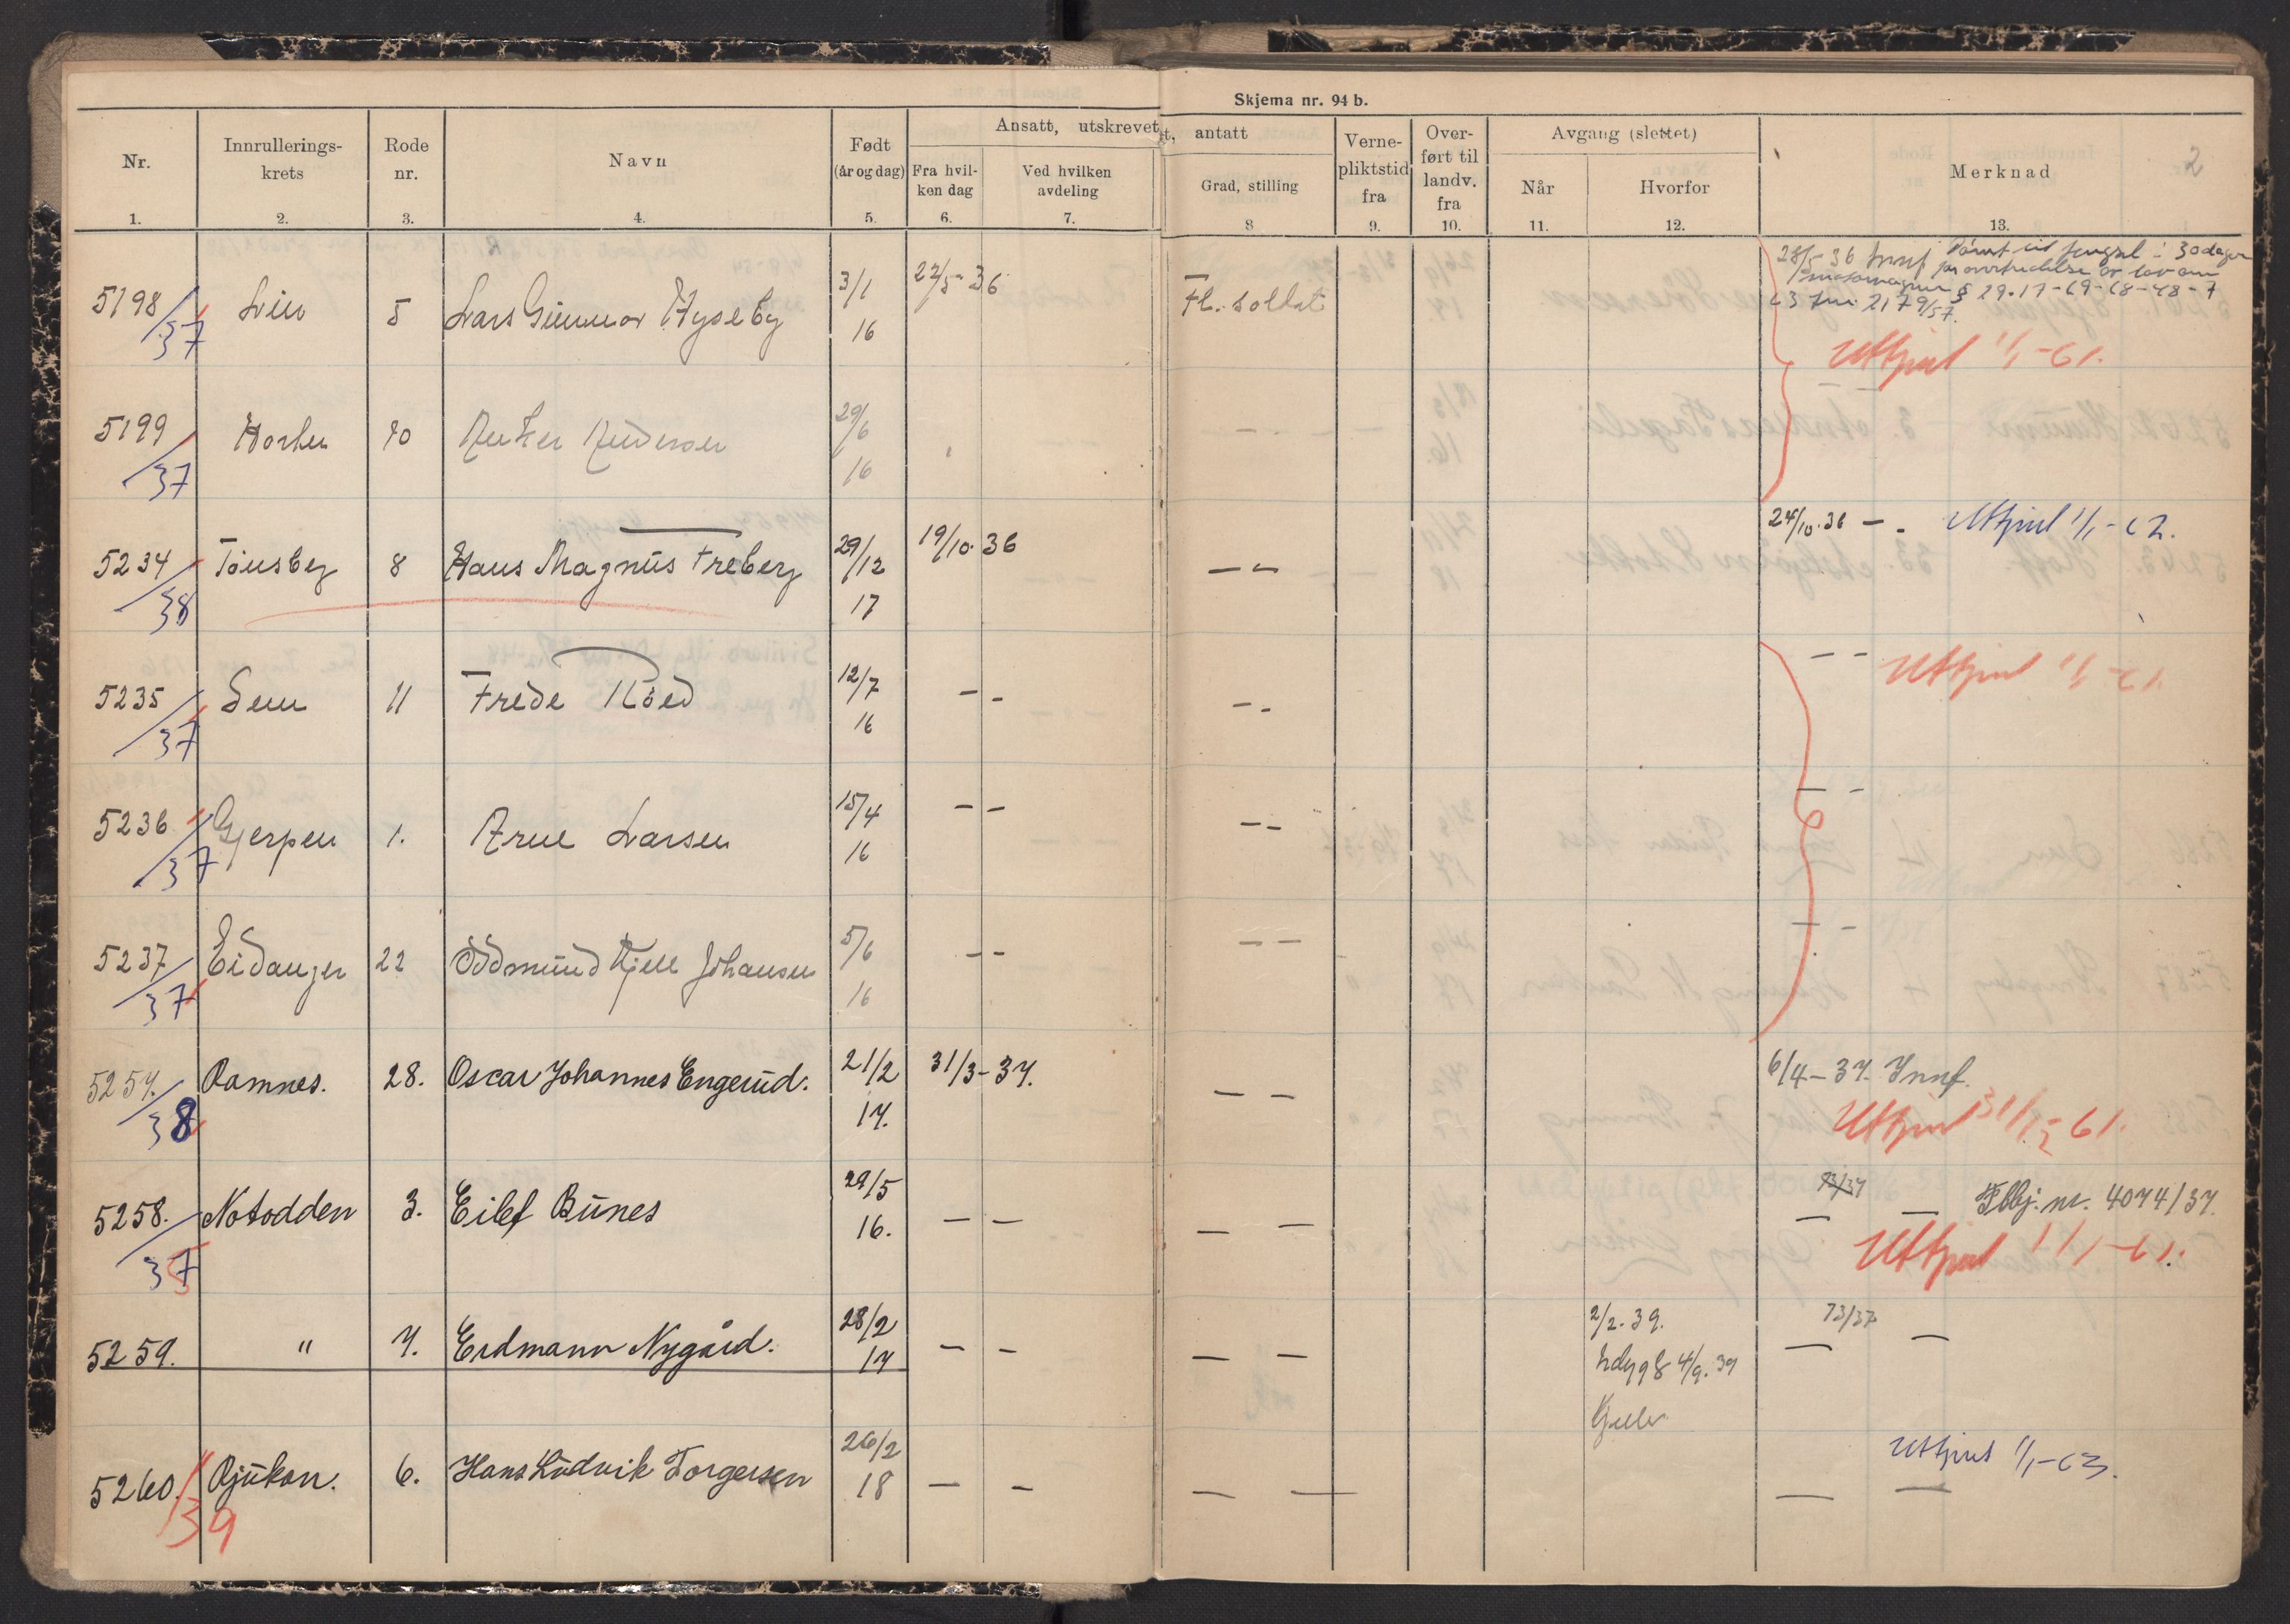 Skjema nr. 94 b.
2
Nr. Innrullerings-krets Rode nr. Navn Født (år og dag) Ansatt, utskrevet, antatt Verne-pliktstid fra Over-ført til landv. fra Avgang (slettet) Merknad
Fra hvil-ken dag Ved hvilken avdeling Grad, stilling Når Hvorfor
1. 2. 3. 4. 5. 6. 7. 8 9. 10. 11. 12. 13.
5198/37 Lier 5 Lars Gunnar Hyseby 3/1 16 22/5-36 Fl. soldat 28/5-36 Innf. Dømt til fengsel i 30 dager
for overtredelse av lov om
motorvogner § 29.17-69-68-48-7
Utkjent 1/1-61.
5199/37 Horten 10 Anker Andersen 29/6 16
5234/38 Tönsberg 8 Hans Magnus Freberg 29/12 17 19/10.36 – – 24/10.36 – - Utkjent 1/1-62.
5235/37 Sem 11 Frede Röed 12/7 16 – - – - – - Utkjent 1/1-61.
5236/37 Gjerpen 1. Arne Larsen 15/4 16 – – – – – -
5237/37 Eidanger 22 Oddmund Kjell Johansen 5/6 16 – - – – – -
5257./38 Ramnes. 28. Oscar Johannes Engerud. 21/2 17. 31/3-37. – – 6/4-37. Innf.
Utkjent 31/12-61.
5258./37 Notodden 3. Eilef Bunes 29/5 16. – – – – 73/37 – – Flbj. nr. 4074/37.
Utkjent 1/1-61.
5259. " 7. Erdmann Nygård. 28/2 17 – – – – 2/2.39. 73/37 – –
4/9.39
5260./39 Rjukan. 6. Hans Ludvik Torgersen 26/2 18 – – – – – – Utkjent 1/1-63.